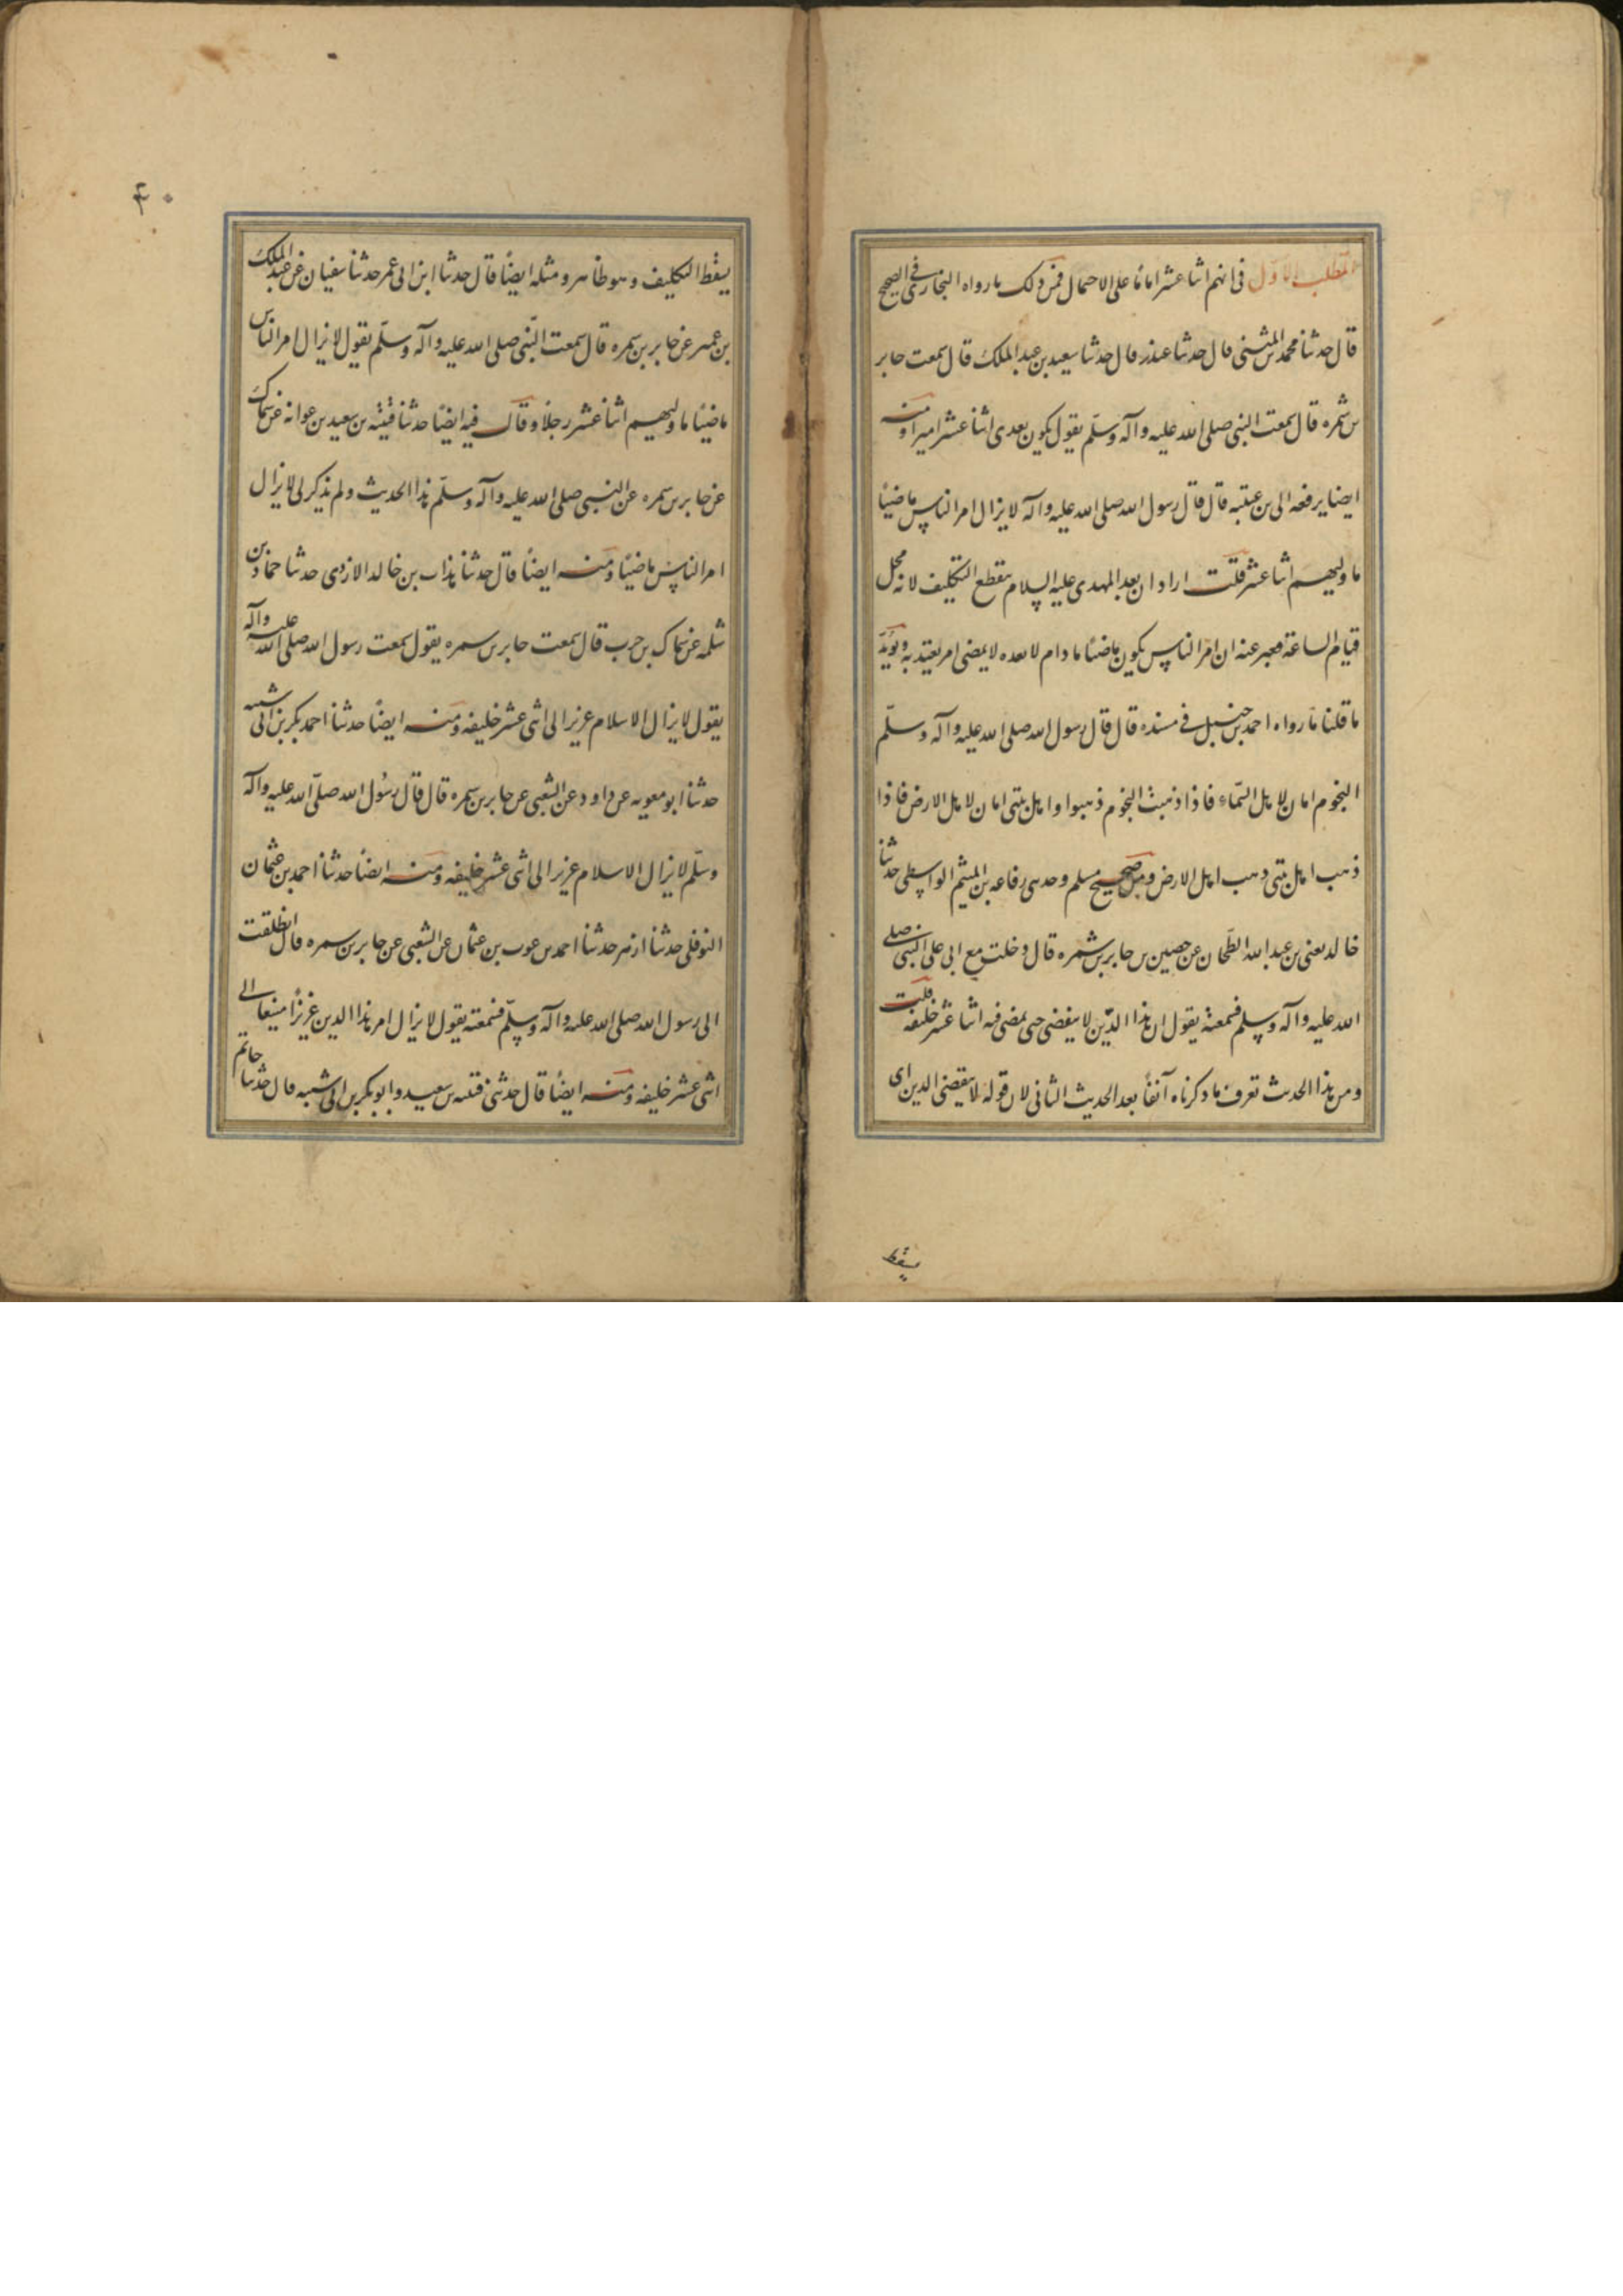 المطلب الاول فى انهم اثنا عشر اماما على الاجمال فمن ذلك ما رواه البخارى فى الصحيح
قال حدثنا محمد بن المثنى قال حدثنا غندر قال حدثنا سعيد بن عبد الملك قال سمعت جابر
بن سمره قال سمعت النبى صلى الله عليه وآله وسلم يقول يكون بعدى اثنا عشر اميرا ومنه
ايضا يرفعه الى بن عيينه قال قال رسول الله صلى الله عليه وآله لا يزال امر الناس ماضيا
ما وليهم اثنا عشر قلت اراد ان بعد المهدى عليه السلام ينقطع التكليف لانه محل
قيام الساعة فعبر عنه ان امر الناس يكون ماضيا ما دام لا بعده لا يمضى امر يعتد به ويؤيد
ما قلنا ما رواه احمد بن حنبل فى مسنده قال قال رسول الله صلى الله عليه وآله وسلم
النجوم امان لاهل السماء فاذا ذهبت النجوم ذهبوا واهل بيتى امان لاهل الارض فاذا
ذهب اهل بيتى ذهب اهل الارض ومن صحيح مسلم وحدثنى رفاعه بن الهيثم الواسطى حدثنا
خالد يعنى بن عبد الله الطحان عن حصين بن جابر بن سمره قال دخلت مع ابى على النبى صلى
الله عليه وآله وسلم فسمعته يقول ان هذا الدين لا ينقضى حتى يمضى فيه اثنا عشر خليفه قلت
ومن هذا الحديث تعرف ما ذكرناه آنفا بعد الحديث الثانى لان قوله لا ينقضى الدين اى
يسقط
۴۰
يسقط التكليف وهو ظاهر ومثله ايضا قال حدثنا ابن ابى عمر حدثنا سفيان عن عبد الملك
بن عمير عن جابر بن سمره قال سمعت النبى صلى الله عليه وآله وسلم يقول لا يزال امر الناس
ماضيا ما وليهم اثنا عشر رجلا وقال فيه ايضا حدثنا قتيبه بن سعيد بن عوانه عن سماك
عن جابر بن سمره عن النبى صلى الله عليه وآله وسلم هذا الحديث ولم يذكر لى لا يزال
امر الناس ماضيا ومنه ايضا قال حدثنا هذاب بن خالد الازدى حدثنا حماد بن
سلمه عن سماك بن حرب قال سمعت جابر بن سمره يقول سمعت رسول الله صلى الله عليه وآله
يقول لا يزال الاسلام عزيز الى اثنى عشر خليفه ومنه ايضا حدثنا احمد بكر بن ابى شيبه
حدثنا ابو معويه عن داود عن الشعبى عن جابر بن سمره قال قال رسول الله صلى الله عليه وآله
وسلم لا يزال الاسلام عزيز الى اثنى عشر خليفه ومنه ايضا حدثنا احمد بن عثمان
النوفلى حدثنا ازهر حدثنا احمد بن عوب بن عثمان عن الشعبى عن جابر بن سمره قال انطلقت
الى رسول الله صلى الله عليه وآله وسلم فسمعته يقول لا يزال امر هذا الدين عزيزا منيعا الى
اثنى عشر خليفه ومنه ايضا قال حدثنى قتيبه بن سعيد وابو بكر بن ابى شيبه قال حدثنا حاتم